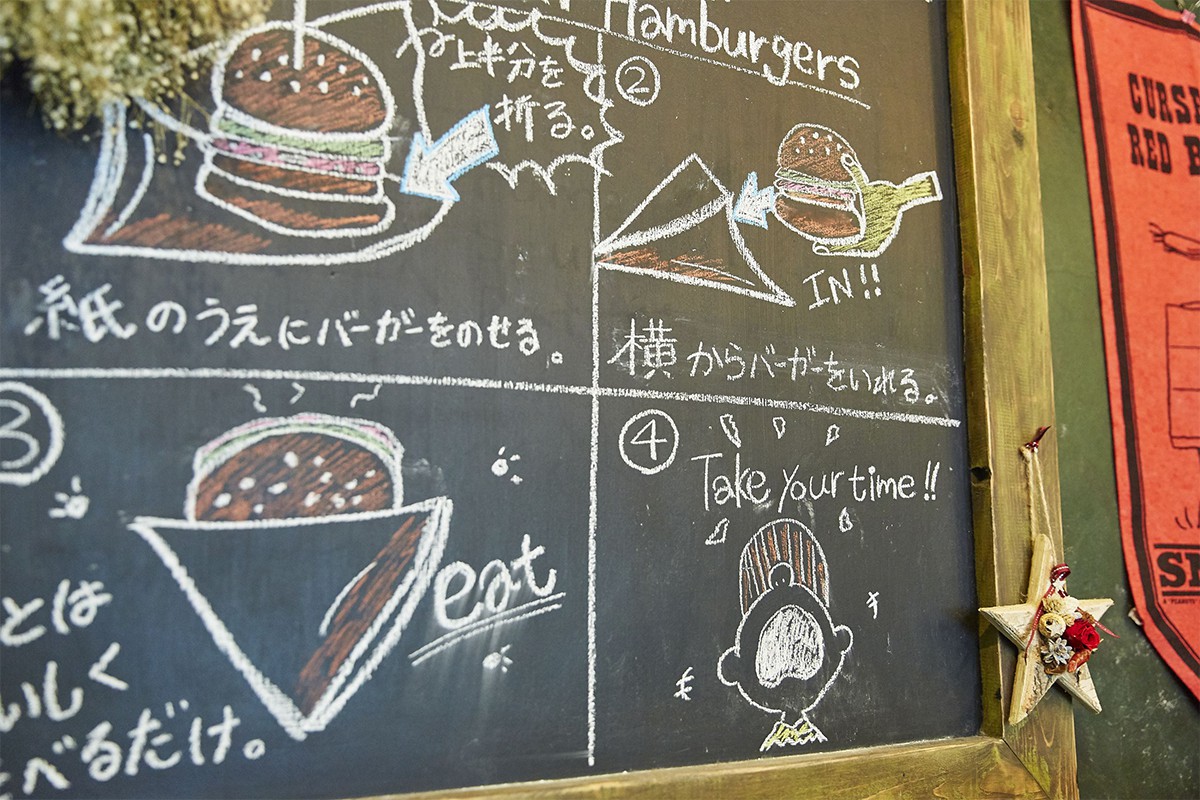 Hamburgers
上半分を
折る。
②
IN!!
紙のうえにバーガーをのせる。
横からバーガーをいれる。
③
eat
とは
いしく
べるだけ。
④
Take your time!!
CURSE
RED B